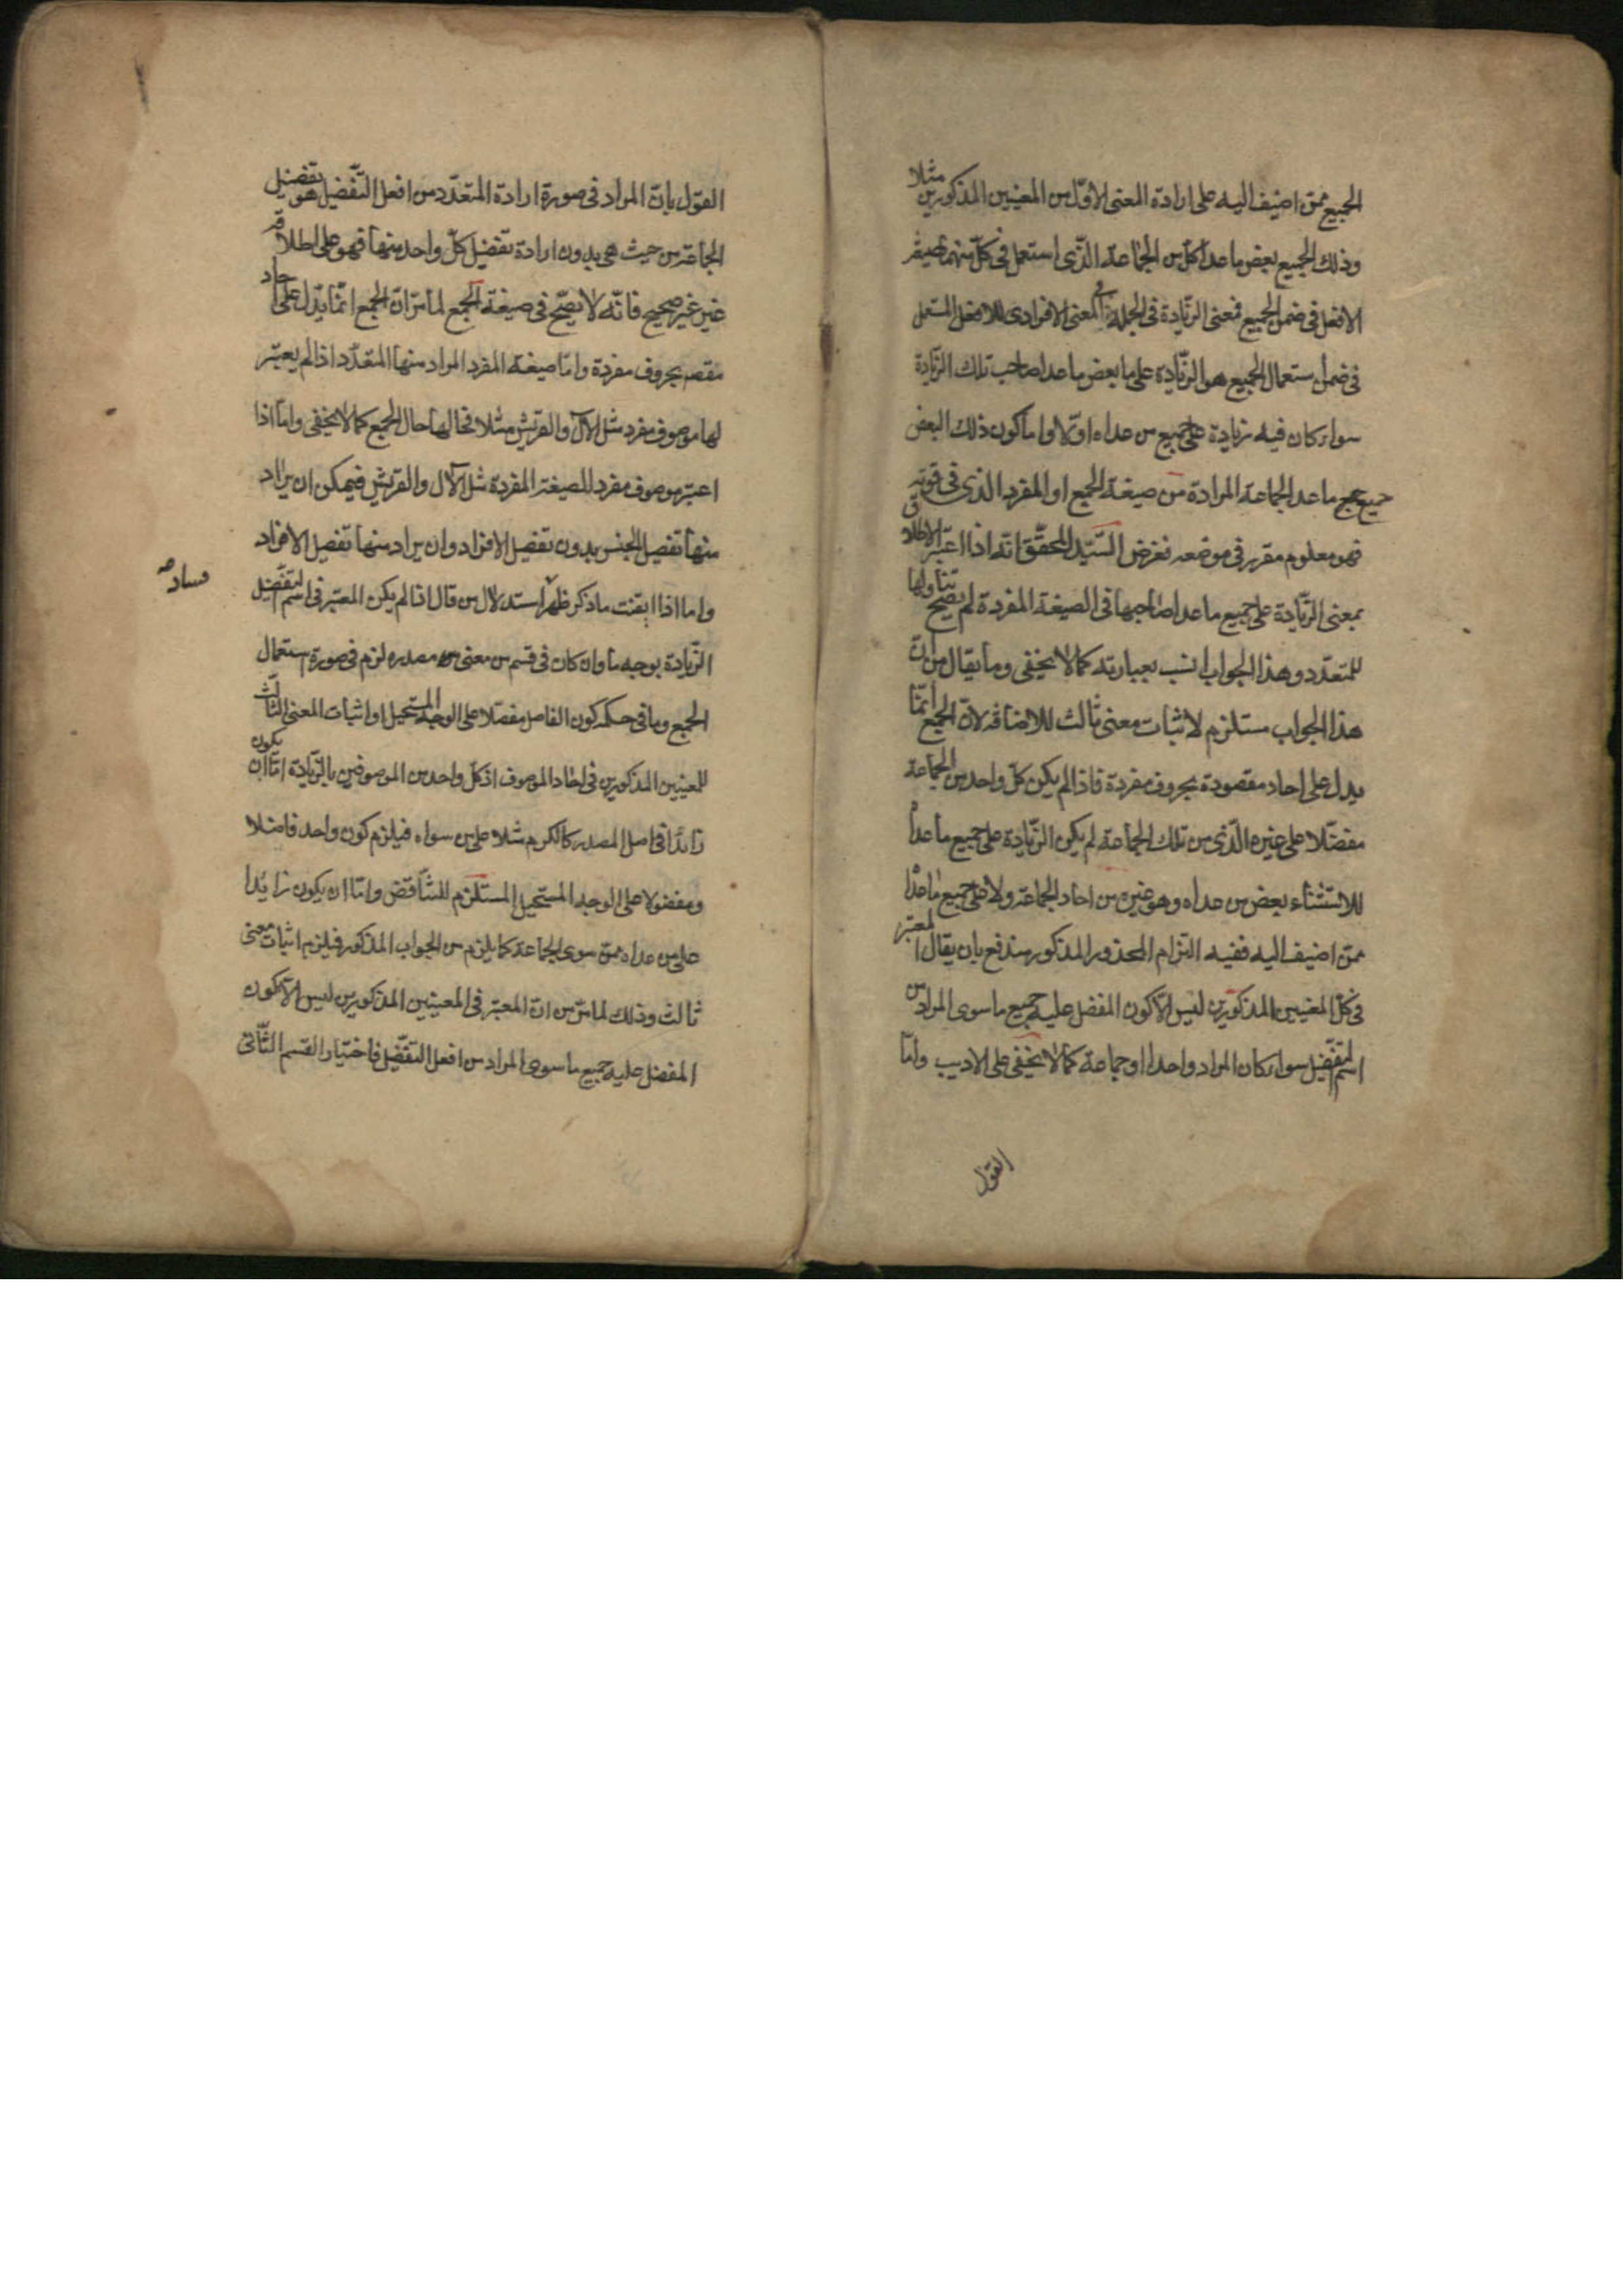 الجميع ممّن اضيف اليه على ارادة المعنى الاوّل من المعنيين المذكورين مثلا
وذلك الجميع بعض ما عدا كلّ من الجماعة الذى استعمل فى كلّ منهم صيغة
الافعل فى ضمن الجميع فمعنى الزّيادة فى الجملة فى المعنى الافرادى للافعل المستعمل
فى ضمن استعمال الجميع هو الزّيادة على ما بعض ما عدا صاحب تلك الزّيادة
سواء كان فيه زيادة على جميع من عداه اوّلا واما كون ذلك البعض
جميع ما عدا الجماعة المرادة من صيغة الجمع او المفرد الذى فى قوّته
فهو معلوم مقرر فى موضعه فغرض السّيّد المحقّق انّه اذا اعتبر الاطلاق
بمعنى الزّيادة على جميع ما عدا صاحبها فى الصيغة المفردة لم يصح تناولها
للمتعدّد وهذا الجواب انسب بعبارته كما لا يخفى وما يقال من انّ
هذا الجواب مستلزم لاثبات معنى ثالث للاضافة لانّ الجمع انّما
يدل على احاد مقصودة بحروف مفردة فاذا لم يكن كلّ واحد من الجماعة
مفضّلا على غيره الّذى من تلك الجماعة لم يكن الزّيادة على جميع ما عدا
للاستثناء بعض من عداه وهو غيره من احاد الجماعة ولا على جميع ما عدا
ممّن اضيف اليه ففيه التزام المحذور المذكور مندفع بان يقال المعتبر
فى كلّ المعنيين المذكورين ليس الّا كون المفضل عليه جميع ما سوى المراد من
اسم التفضيل سواء كان المراد واحدا او جماعة كما لا يخفى على الاديب وامّا
القول
القول بانّ المراد فى صورة ارادة المتعدّد من افعل التّفضيل هو تفضيل
الجماعة من حيث هى بدون ارادة تفضيل كلّ واحد منها فهو على اطلاقه
غير صحيح فانّه لا يصحّ فى صيغة الجمع لما مرّ انّ الجمع انّما يدّل على احاد
بحروف مفردة وامّا صيغة المفرد المراد منها المتعدّد اذا لم يعتبر
لها موصوف مفرد مثل الآل والقريش مثلا فحالها حال الجمع كما لا يخفى وامّا اذا
اعتبر موصوف مفرد للصيغة المفردة مثل الآل والقريش فيمكن ان يراد
منها تفضيل الجنس بدون تفضيل الافراد وان يراد منها تفضيل الافراد
واما اذا ايقنت ما ذكر ظهر استدلال من قال اذا لم يكن المعتبر فى اسم التفضيل
فساد صح
الزّيادة بوجه ما وان كان فى قسم من معنى من مصدره لزم فى صورة استعمال
الجمع وما فى حكمه كون الفاضل مفضّلا على الوجه المستحيل او اثبات المعنى الثّالث
للمعنيين المذكورين فى احاد الموصوف اذ كلّ واحد من الموصوفين بالزّيادة امّا ان يكون
زائدا فى اصل المصدر كالكرم مثلا على من سواه فيلزم كون واحد فاضلا
ومفضولا على الوجه المستحيل المستلزم للتّناقض وامّا ان يكون زايدا
على من عداه ممّن سوى الجماعة كما يلزم من الجواب المذكور فيلزم اثبات معنى
ثالث وذلك لما مرّ من انّ المعتبر فى المعنيين المذكورين ليس الّا كون
المفضل عليه جميع ما سوى المراد من افعل التفضّيل فاختيار القسم الثّانى